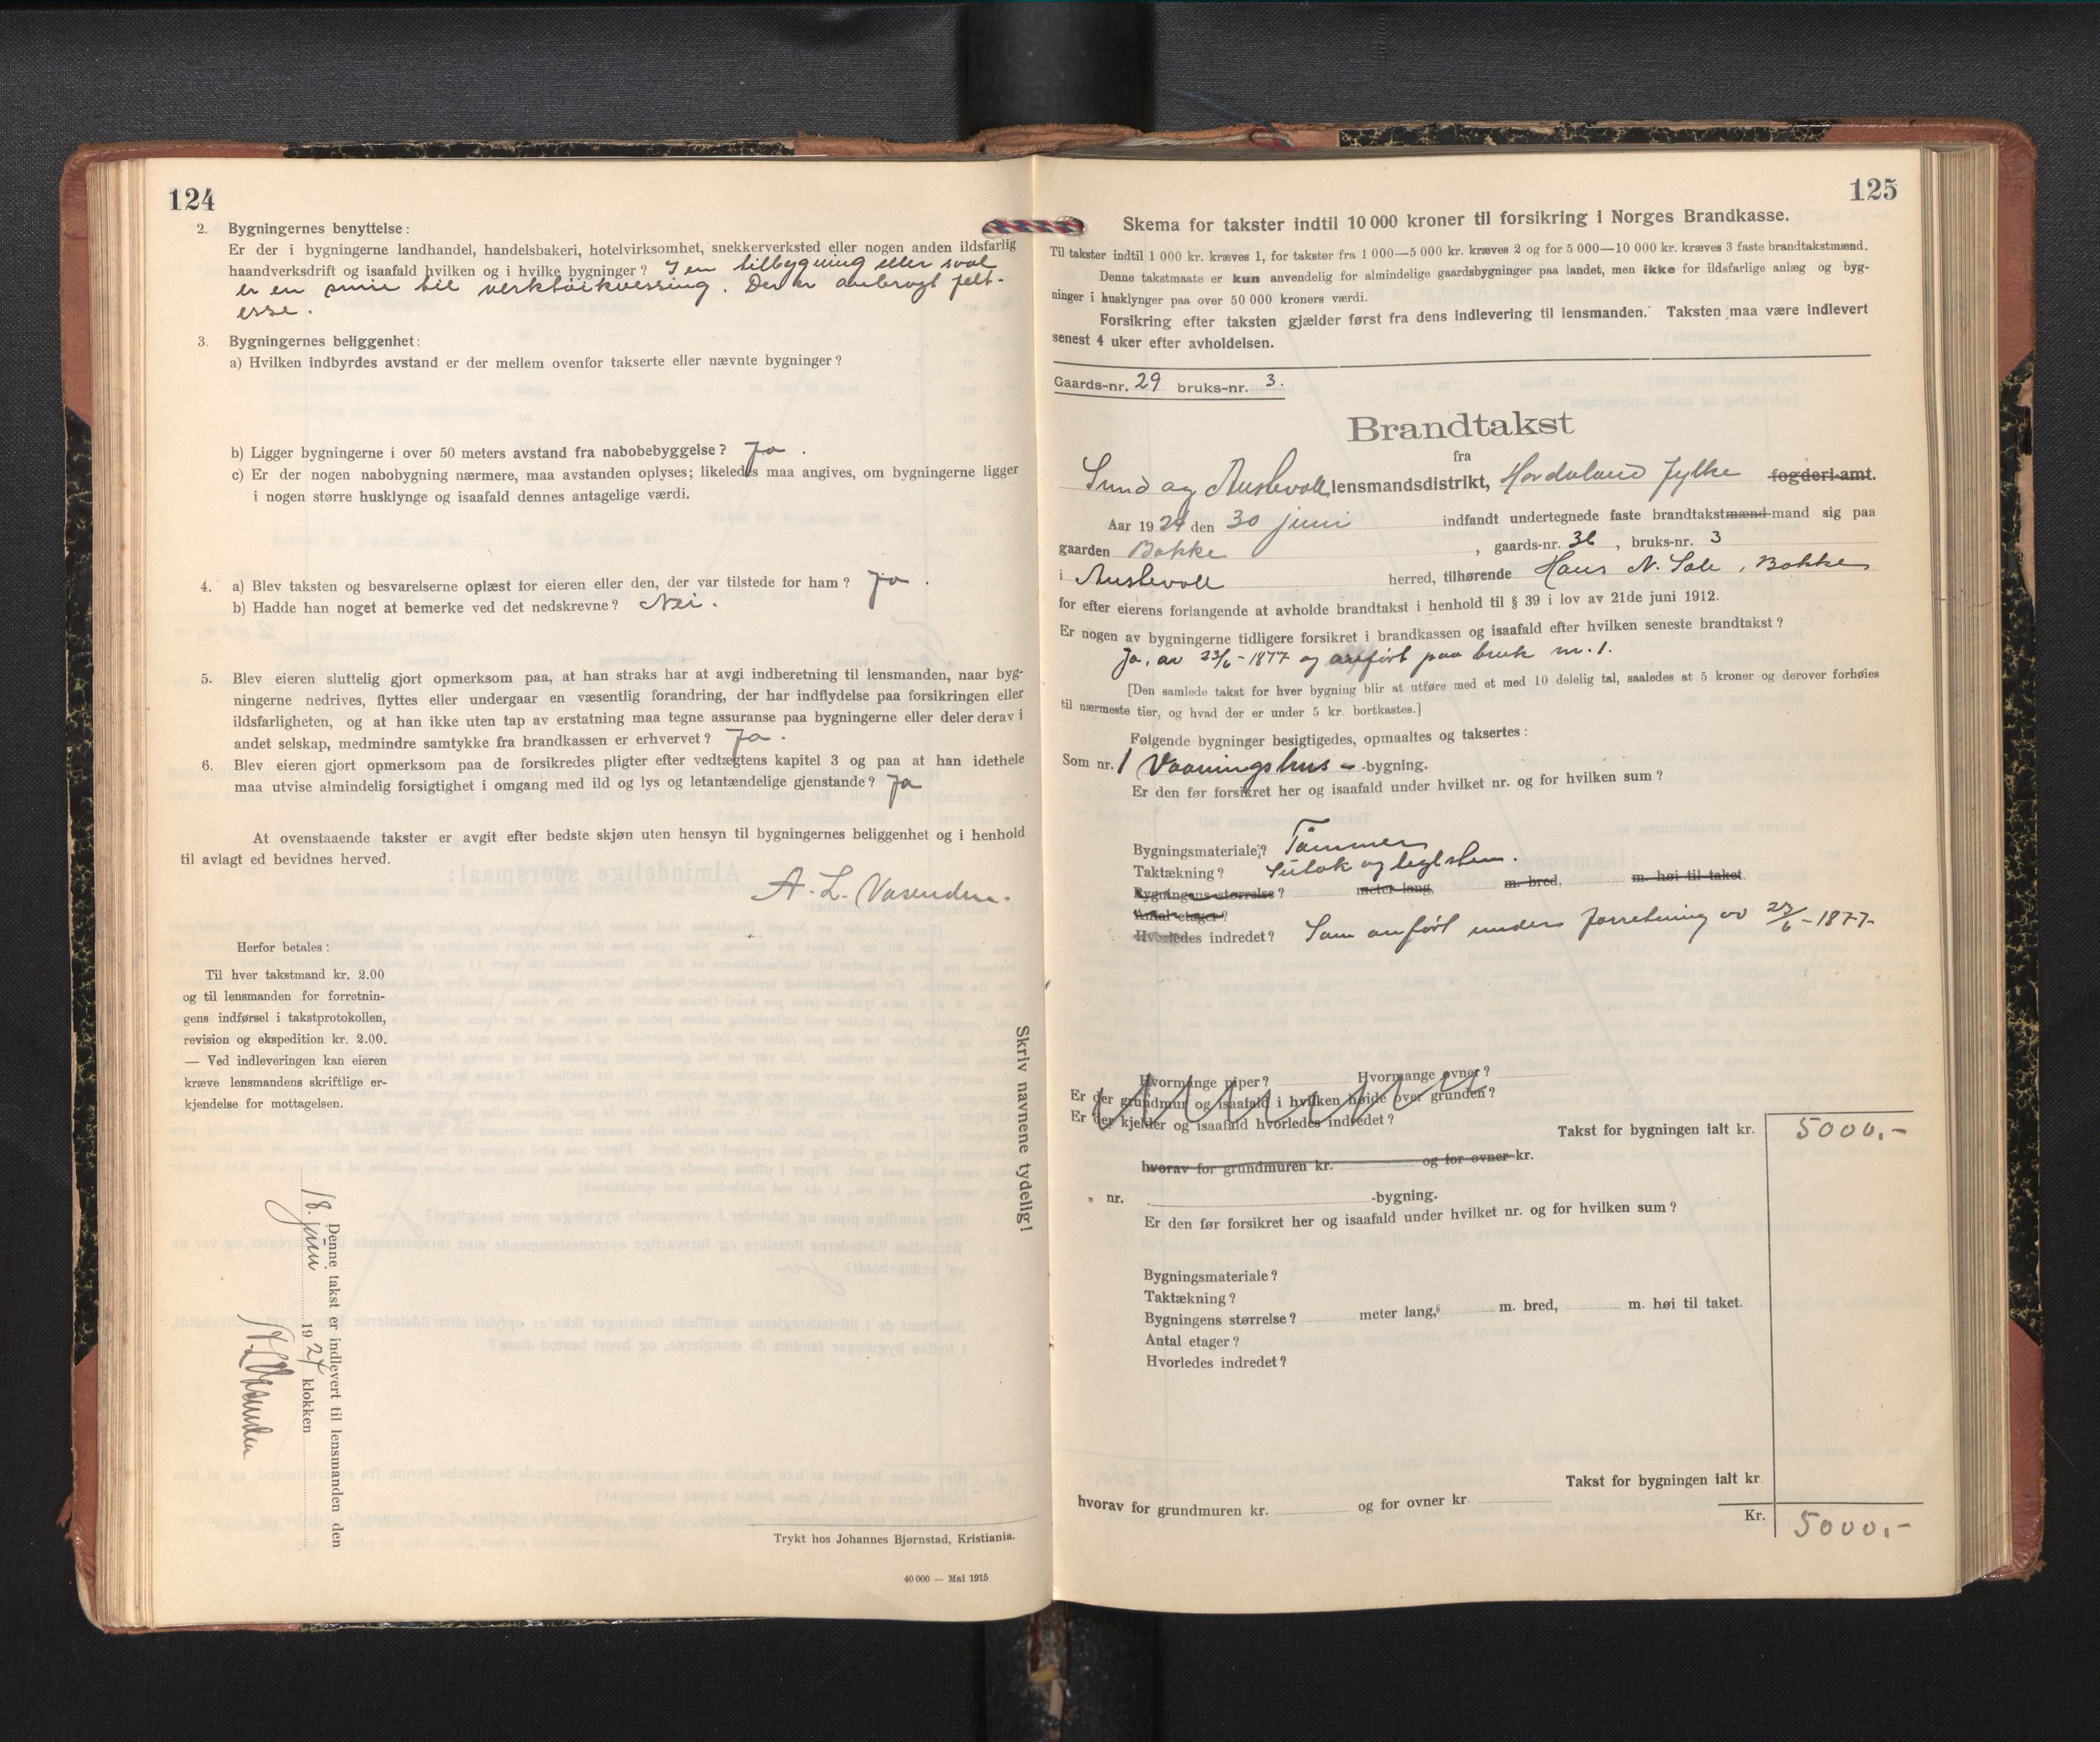 124
2. Bygningernes benyttelse:
Er der i bygningerne landhandel, handelsbakeri, hotelvirksomhet, snekkerverksted eller nogen anden ildsfarlig
haandverksdrift og isaafald hvilken og i hvilke bygninger? I en tilbygning eller sval
er en smie til verktöikvessing. Der er anbragt felt-
esse.
3. Bygningernes beliggenhet:
a) Hvilken indbyrdes avstand er der mellem ovenfor takserte eller nævnte bygninger?
b) Ligger bygningerne i over 50 meters avstand fra nabobebyggelse? Ja.
c) Er der nogen nabobygning nærmere, maa avstanden oplyses; likeledes maa angives, om bygningerne ligger
i nogen større husklynge og isaafald dennes antagelige værdi.
4. a) Blev taksten og besvarelserne oplæst for eieren eller den, der var tilstede for ham? Ja.
b) Hadde han noget at bemerke ved det nedskrevne? Nei.
5. Blev eieren sluttelig gjort opmerksom paa, at han straks har at avgi indberetning til lensmanden, naar byg-
ningerne nedrives, flyttes eller undergaar en væsentlig forandring, der har indflydelse paa forsikringen eller
ildsfarligheten, og at han ikke uten tap av erstatning maa tegne assuranse paa bygningerne eller deler derav i
andet selskap, medmindre samtykke fra brandkassen er erhvervet? Ja.
6. Blev eieren gjort opmerksom paa de forsikredes pligter efter vedtægtens kapitel 3 og paa at han idethele
maa utvise almindelig forsigtighet i omgang med ild og lys og letantændelige gjenstande? Ja
At ovenstaaende takster er avgit efter bedste skjøn uten hensyn til bygningernes beliggenhet og i henhold
til avlagt ed bevidnes herved.
A. L. Vasenden.
Herfor betales:
Til hver takstmand kr. 2.00
og til lensmanden for forretnin-
gens indførsel i takstprotokollen,
revision og ekspedition kr. 2.00.
— Ved indleveringen kan eieren
kræve lensmandens skriftlige er-
kjendelse for mottagelsen.
Skriv navnene tydelig!
Denne takst er indlevert til lensmanden den
18. juni 1924 klokken
A L Vasenden
Trykt hos Johannes Bjørnstad, Kristiania.
40 000 — Mai 1915
125
Skema for takster indtil 10 000 kroner til forsikring i Norges Brandkasse.
Til takster indtil 1 000 kr. kræves 1, for takster fra 1 000—5 000 kr. kræves 2 og for 5 000—10 000 kr. kræves 3 faste brandtakstmænd.
Denne takstmaate er kun anvendelig for almindelige gaardsbygninger paa landet, men ikke for ildsfarlige anlæg og byg-
ninger i husklynger paa over 50 000 kroners værdi.
Forsikring efter taksten gjælder først fra dens indlevering til lensmanden. Taksten maa være indlevert
senest 4 uker efter avholdelsen.
Gaards-nr. 29 bruks-nr. 3.
Brandtakst
fra
Sund og Austevoll lensmandsdistrikt, Hordaland Fylke fogderi-amt.
Aar 1924 den 30 juni indfandt undertegnede faste brandtakstmænd-mand sig paa
gaarden Bakke, gaards-nr. 36, bruks-nr. 3
i Austevoll herred, tilhørende Hans N. Sale, Bakke
for efter eierens forlangende at avholde brandtakst i henhold til § 39 i lov av 21de juni 1912.
Er nogen av bygningerne tidligere forsikret i brandkassen og isaafald efter hvilken seneste brandtakst?
Ja, av 23/6-1877 og anført paa bruk nr. 1.
[Den samlede takst for hver bygning blir at utføre med et med 10 delelig tal, saaledes at 5 kroner og derover forhøies
til nærmeste tier, og hvad der er under 5 kr. bortkastes.]
Følgende bygninger besigtigedes, opmaaltes og taksertes:
Som nr. 1 Vaaningshus - -bygning.
Er den før forsikret her og isaafald under hvilket nr. og for hvilken sum?
Bygningsmateriale? Tömmer
Taktækning? og teglsten.
Bygningens størrelse? meter lang, m. bred, m. høi til taket.
Antal etager?
Hvorledes indredet? Som anfört under forretning av 23/6-1877-
Hvormange piper? Hvormange ovner?
Er der grundmur og isaafald i hvilken høide over grunden?
Er der kjelder og isaafald hvorledes indredet?
Takst for bygningen ialt kr. 5000.-
hvorav for grundmuren kr. og for ovner kr.
„ nr. -bygning.
Er den før forsikret her og isaafald under hvilket nr. og for hvilken sum?
Bygningsmateriale?
Taktækning?
Bygningens størrelse? meter lang, m. bred, m. høi til taket.
Antal etager?
Hvorledes indredet?
Takst for bygningen ialt kr
hvorav for grundmuren kr. og for ovner kr.
Kr. 5000.-